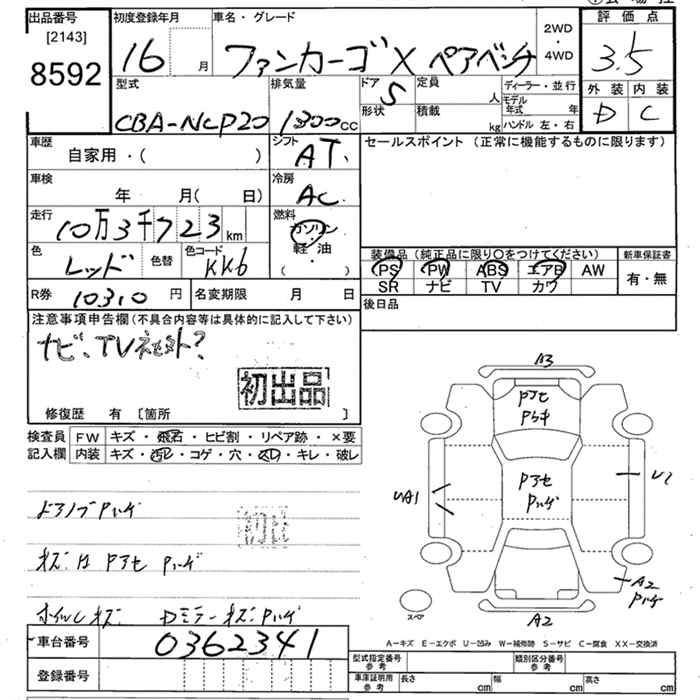 出品番号 初度登録年月 車名・グレード 評価点
[2143] 2WD
8592 16 月 ファンカーゴ X ペアベンチ ・ 3.5
4WD
型式 排気量 ドア 5 定員 人 ディーラー・並行 外装 内装
CBA-NCP20 1300cc 形状 積載 kg モデル年式 年 D C
ハンドル 左・右
車歴 自家用・( ) シフト AT セールスポイント (正常に機能するものに限ります)
車検 年 月( 日) 冷房 AC
走行 10万3千723km 燃料 ガソリン・軽油 ( )
色 レッド 色替 色コード 装備品 (純正品に限り○をつけてください) 新車保証書
PS PW ABS エアB AW 有・無
SR ナビ TV カワ
R券 10310円 名変期限 月 日 後日品
注意事項申告欄(不具合内容等は具体的に記入して下さい)
ナビ、TV 社外?
初出品
修復歴 有 [箇所 ]
検査員記入欄 FW キズ・飛石・ヒビ割・リペア跡・×要
内装 キズ・汚レ・コゲ・穴・スレ・キレ・破レ
A3
Pアセ
Pアセ
Pハゲ
UA1
U2
A2
Pハゲ
A2
スペア
ドアノブPハゲ
初出品
キズ Pアセ Pハゲ
ホイルキズ Dミラーキズ Pハゲ
A-キズ E-エクボ U-凹み W-補修跡 S-サビ C-腐食 XX-交換済
車台番号 0362341
登録番号
型式指定番号 参考 類別区分番号 参考
車庫証明用 参考 長さ cm 幅 cm 高さ cm